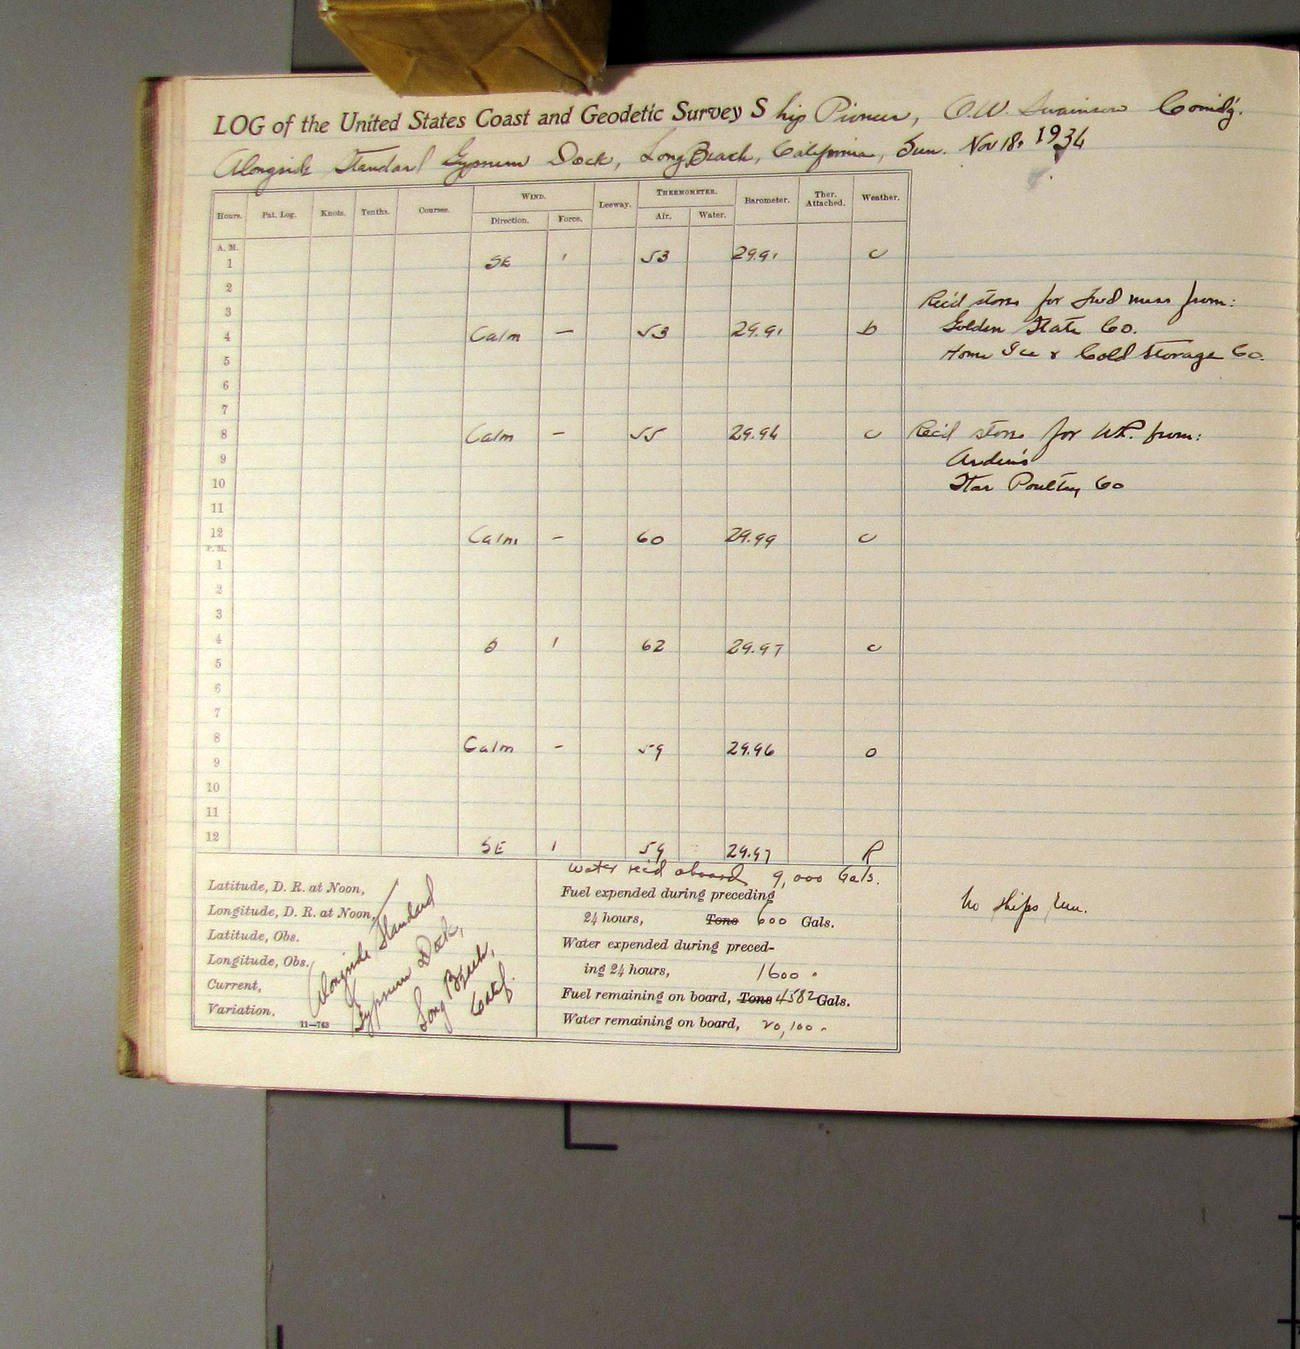 LOG of the United States Coast and Geodetic Survey Ship Pioneer, O.W. Swainson Comd'g.
Alongside Standard Gypsum Dock, Long Beach, California, Sun. Nov 18, 1934
Hours. Pat. Log. Knots. Tenths. Courses. WIND. Direction. Force. Leeway. THERMOMETER. Air. Water. Barometer. Ther. Attached. Weather.
A. M.
1 SE 1 53 29.91 c
2
3 Rec'd stores for fwd mess from:
4 Calm — 53 29.91 b Golden State Co.
5 Home Ice & Cold Storage Co.
6
7
8 Calm — 55 29.94 c Rec'd stores for W.R. from:
9 Arden's
10 Star Poultry Co
11
12 Calm - 60 29.99 c
P. M.
1
2
3
4 S 1 62 29.97 c
5
6
7
8 Calm - 59 29.96 o
9
10
11
12 SE 1 59 29.97 R
Water rec'd aboard 9,000 Gals.
Latitude, D. R. at Noon,
Longitude, D. R. at Noon,
Latitude, Obs.
Longitude, Obs.
Current,
Variation,
11—763
Alongside Standard
Gypsum Dock,
Long Beach,
Calif.
Fuel expended during preceding
24 hours, Tons 600 Gals.
Water expended during preced-
ing 24 hours, 1600 "
Fuel remaining on board, Tons 4582 Gals.
Water remaining on board, 20,100 "
No ships run.